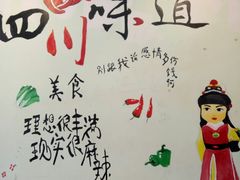 四川味道
别跟我谈感情多伤钱何
美食
理想很丰满
现实很麻辣